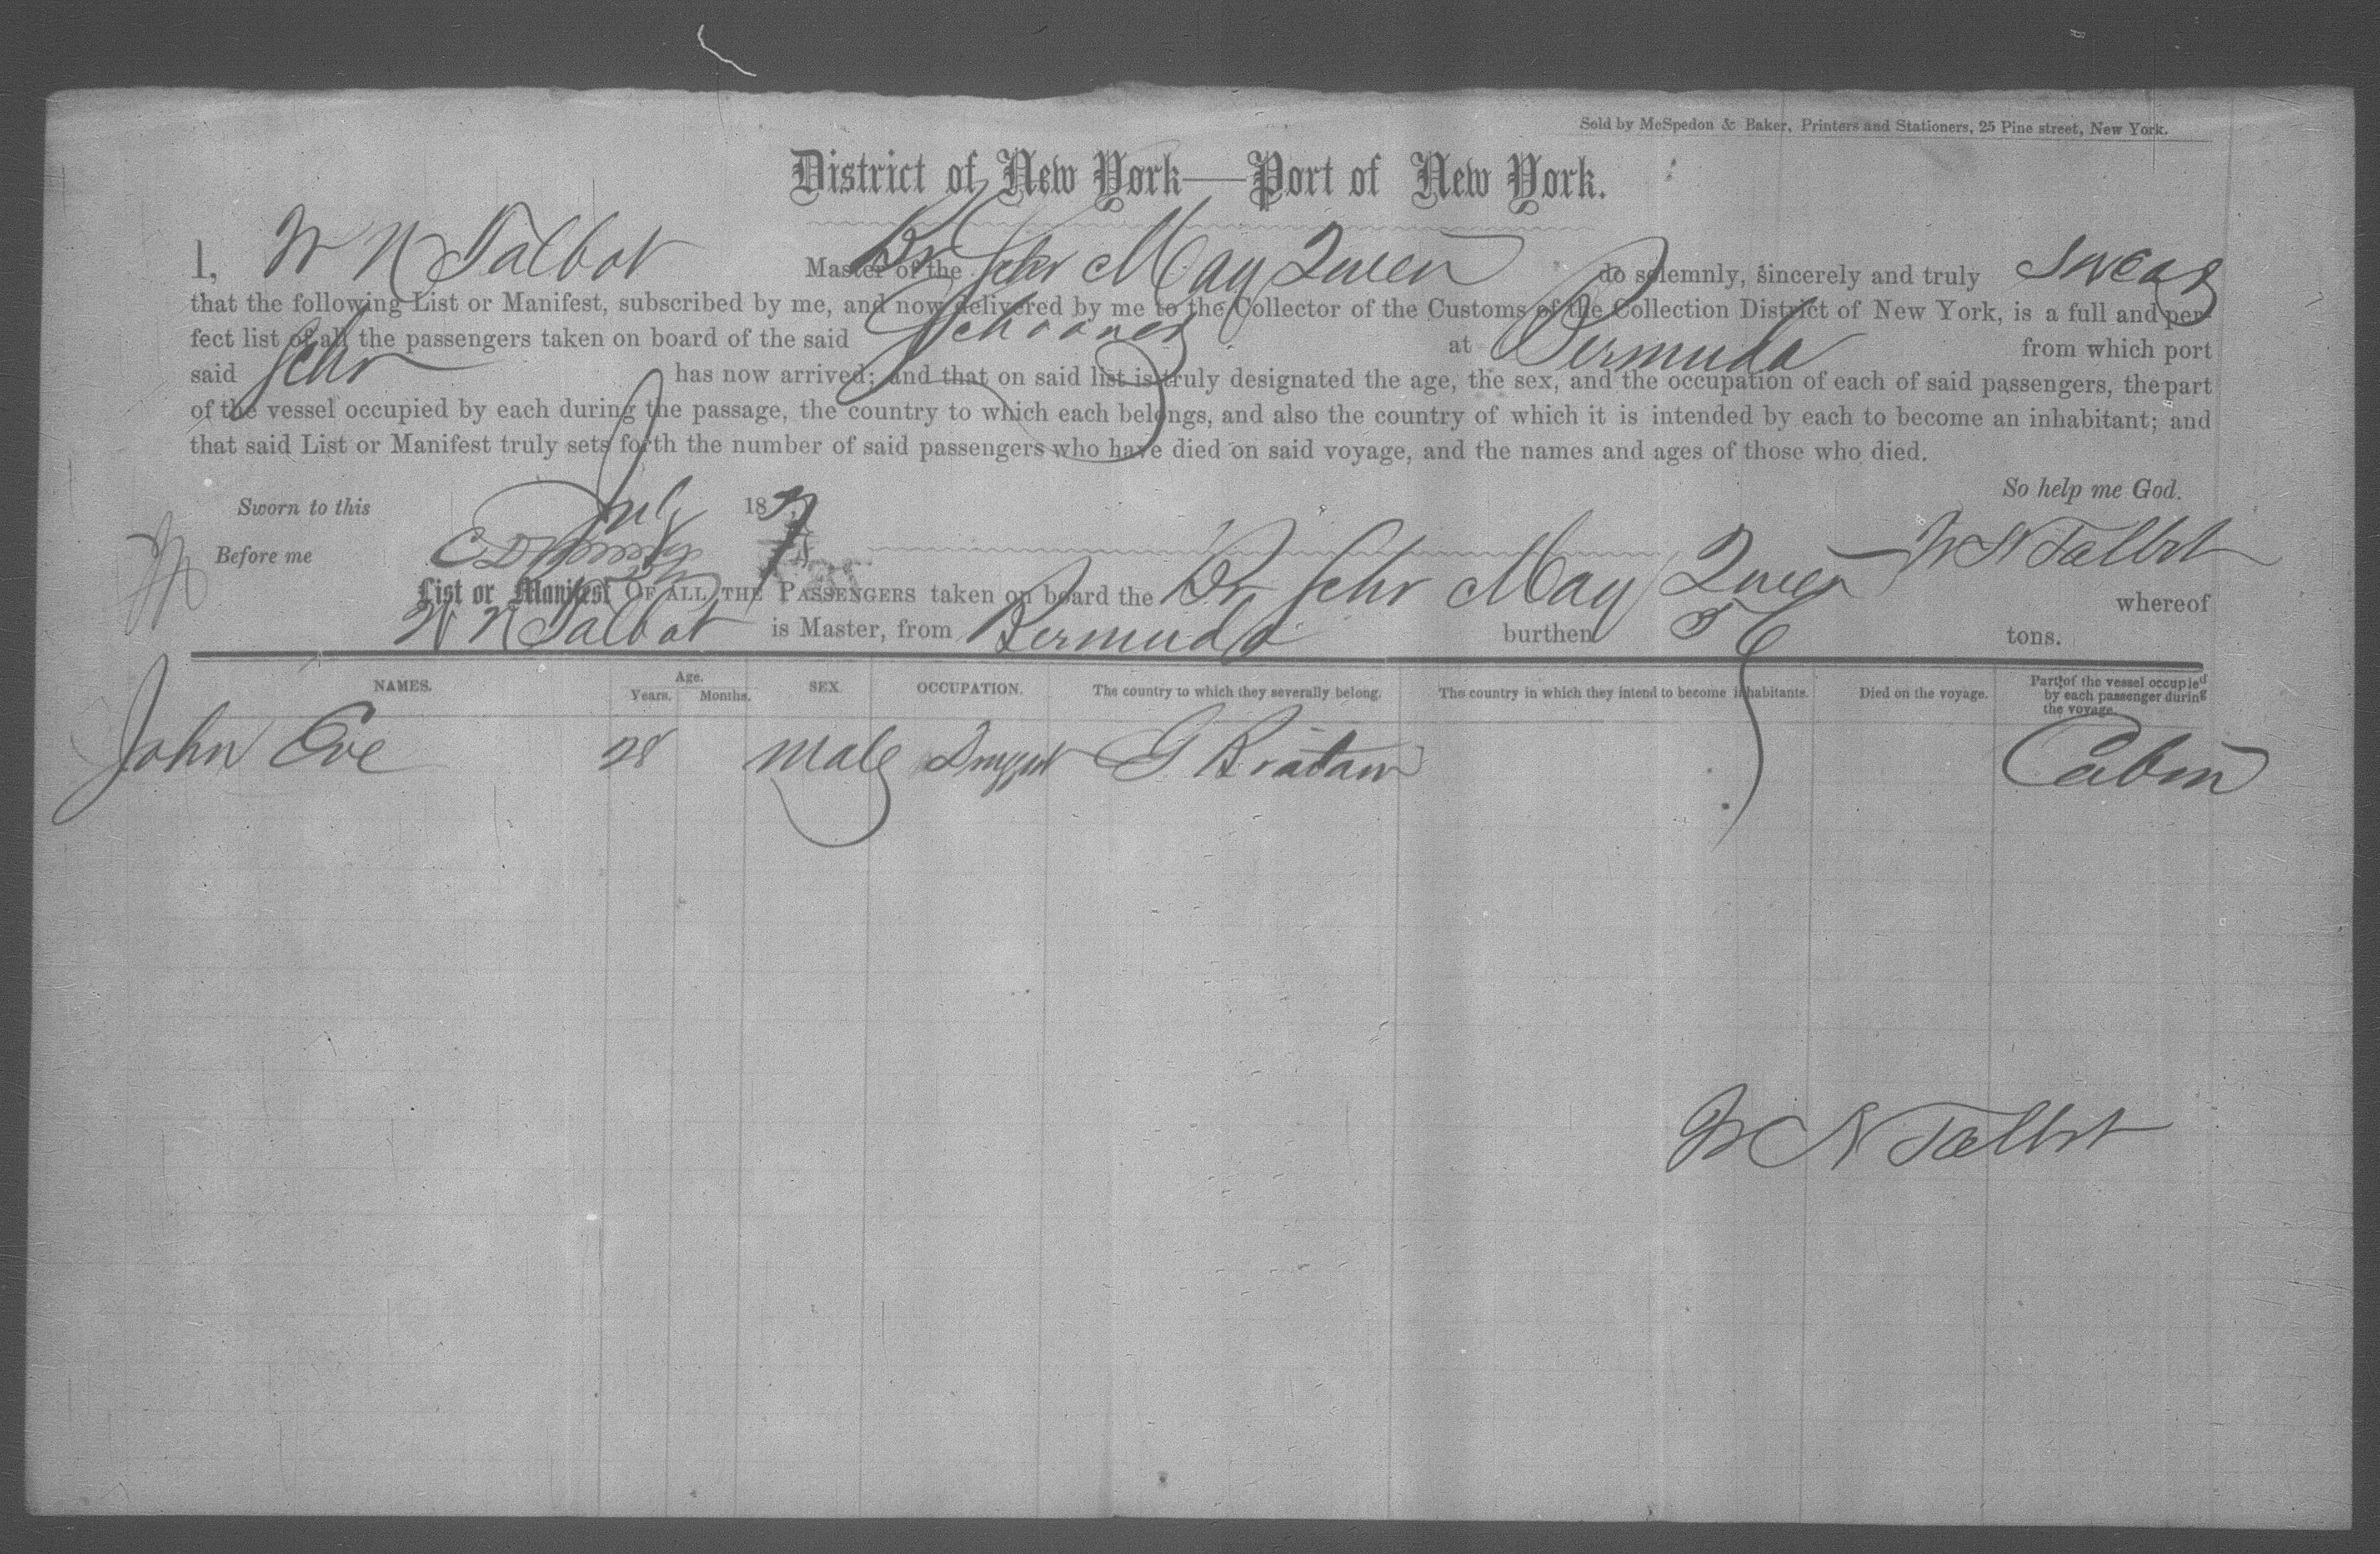 Sold by McSpedon & Baker, Printers and Stationers, 25 Pine street, New York.
District of New York—Port of New York.
I, W N Talbot Master of the Br Schr May Queen do solemnly, sincerely and truly swear
that the following List or Manifest, subscribed by me, and now delivered by me to the Collector of the Customs of the Collection District of New York, is a full and per-
fect list of all the passengers taken on board of the said Schooner at Bermuda from which port
said Schr has now arrived; and that on said list is truly designated the age, the sex, and the occupation of each of said passengers, the part
of the vessel occupied by each during the passage, the country to which each belongs, and also the country of which it is intended by each to become an inhabitant; and
that said List or Manifest truly sets forth the number of said passengers who have died on said voyage, and the names and ages of those who died.
So help me God.
Sworn to this July 18
Before me W N Talbot
List or Manifest OF ALL THE PASSENGERS taken on board the Br Schr May Queen whereof
W N Talbot is Master, from Bermuda burthen 56 tons.
NAMES. Age. Years. Months. SEX. OCCUPATION. The country to which they severally belong. The country in which they intend to become inhabitants. Died on the voyage. Part of the vessel occupied by each passenger during the voyage.
John Eve 28 Male G Britain Cabin
W N Talbot